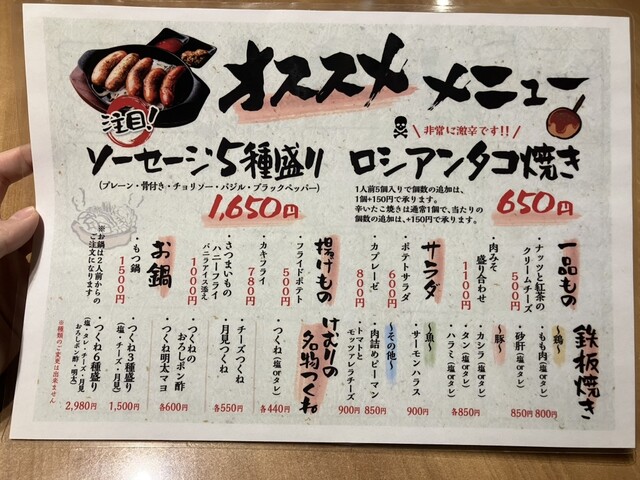 オススメ メニュー
注目!
ソーセージ5種盛り
(プレーン・骨付き・チョリソー・バジル・ブラックペッパー)
1,650円
\ 非常に激辛です!! /
ロシアンタコ焼き
1人前5個入りで個数の追加は、
1個+150円で承ります。
辛いたこ焼きは通常1個で、当たりの
個数の追加は、+150円で承ります。
650円
一品もの
・ナッツと紅茶の
クリームチーズ
500円
・肉みそ
盛り合わせ
1100円
サラダ
・ポテトサラダ
600円
・カプレーゼ
800円
揚げもの
・フライドポテト
500円
・カキフライ
780円
・さつまいもの
ハニーフライ
バニラアイス添え
1000円
お鍋
・もつ鍋
1500円
※お鍋は2人前からの
ご注文になります
鉄板焼き
〜鶏〜
・もも肉(塩orタレ)
800円
・砂肝(塩orタレ)
850円
〜豚〜
・カシラ(塩orタレ)
・タン(塩orタレ)
・ハラミ(塩orタレ)
各850円
〜魚〜
・サーモンハラス
900円
〜その他〜
・肉詰めピーマン
850円
・トマトと
モッツァレラチーズ
900円
けむりの
名物つくね
・つくね(塩orタレ)
各440円
・チーズつくね
・月見つくね
各550円
・つくねの
おろしポン酢
・つくね明太マヨ
各600円
・つくね3種盛り
(塩・チーズ・月見)
1,500円
・つくね6種盛り
(塩・タレ・チーズ・月見
おろしポン酢・明太)
2,980円
※種類のご変更は出来ません